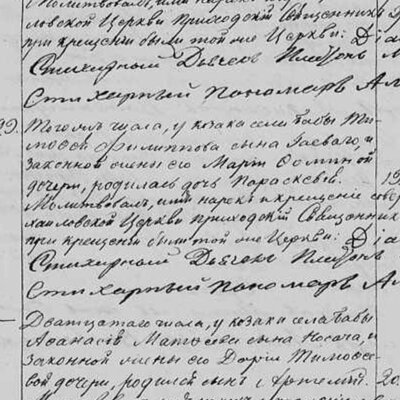 Молитвовалъ, имя нарекъ
ловской Церкви приходскій Священникъ
при крещеніи были той же Церкви: Діа
Стихарный Дьячекъ
Стихарный пономарь Ал
99. Того жъ числа, у козака села Бабы Ти
моѳея Филиппова сына Гаеваго, и
законной жены его Марѳы Осиповой
дочери, родилась дочь Параскевія.
Молитвовалъ, имя нарекъ и крещеніе совер
хаиловской Церкви приходскій Священникъ
при крещеніи были той же Церкви: Діа
Стихарный Дьячекъ
Стихарный пономарь Ал
Двадцатаго числа, у козака села Бабы
Аѳанасія Матѳеева сына Носача, и
законной жены его Дарьи Тимоѳее
вой дочери, родился сынъ Артемій. 20